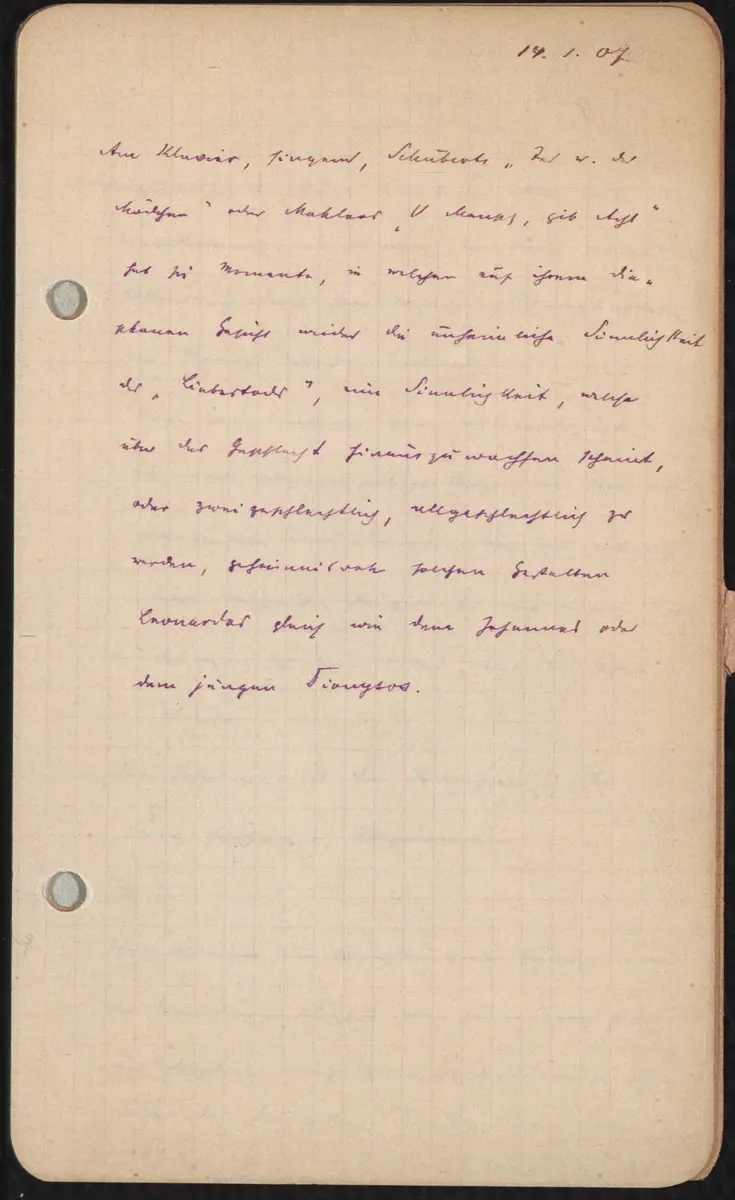 14. 1. 07
Am Klavier, singend, Schuberts „Tod u. das
Mädchen“ oder Mahlers „O Mensch, gib Acht“
hat sie Momente, in welchen auf ihrem dia-
phanen Gesicht wieder die unheimliche Sinnlichkeit
des „Liebestods“, eine Sinnlichkeit, welche
über das Geschlecht hinauszuwachsen scheint,
oder zweigeschlechtlich, allgeschlechtlich zu
werden, geheimnisvoll solchen Gestalten
Leonardos gleich wie dem Johannes oder
dem jungen Dionysos.